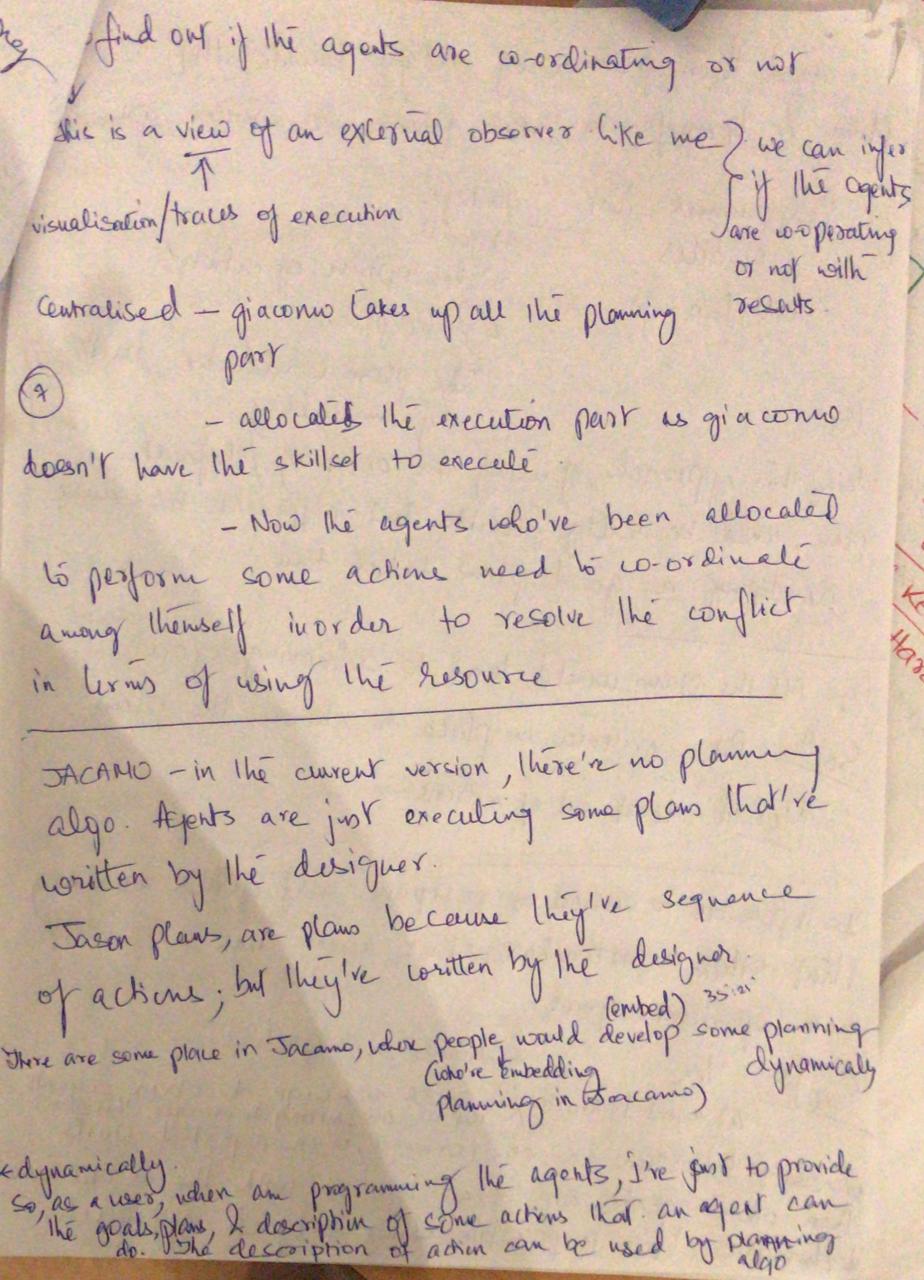 find out if the agents are co-ordinating or not
this is a view of an external observer like me
we can infer
if the agents
are co-operating
or not with
results.
visualisation/traces of execution
Centralised - giacomo takes up all the planning
part
7
- allocated the execution part as giacomo
doesn't have the skillset to execute.
- Now the agents who've been allocated
to perform some actions need to co-ordinate
among themself inorder to resolve the conflict
in terms of using the resource
JACAMO - in the current version, there're no planning
algo. Agents are just executing some plans that're
written by the designer.
Jason plans, are plans because they've sequence
of actions; but they're written by the designer.
(embed) 35:21
There are some place in Jacamo, where people would develop some planning
(who're embedding dynamically
planning in Jacamo)
dynamically.
So, as a user, when am programming the agents, I've just to provide
the goals, plans, & description of some actions that an agent can
do. The description of action can be used by planning
algo